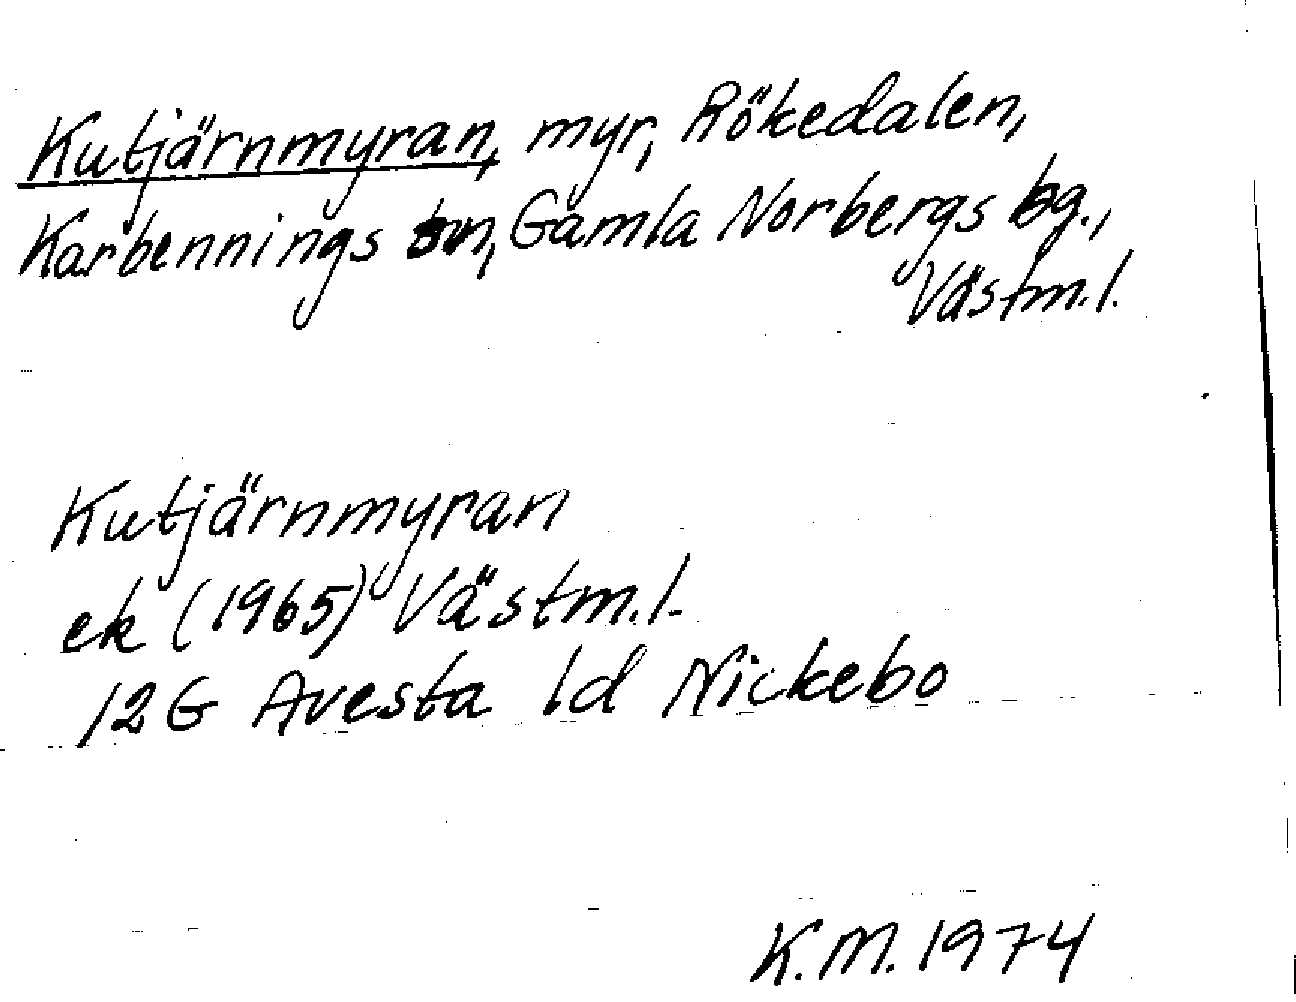 Kutjärnmyran, myr, Rökedalen,
Karbennings sn, Gamla Norbergs bg.,
Västm.l.
Kutjärnmyran
ek (1965) Västm.l.
12G Avesta 1d Nickebo
K.M. 1974